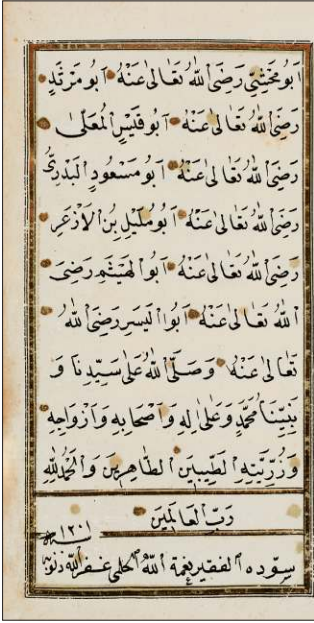 اَبُو مَخْشِيٍّ رَضِيَ اللّٰهُ تَعَالٰى عَنْهُ اَبُو مَرْثَدٍ
رَضِيَ اللّٰهُ تَعَالٰى عَنْهُ اَبُو قَيْسٍ الْمُعَلّٰى
رَضِيَ اللّٰهُ تَعَالٰى عَنْهُ اَبُو مَسْعُودٍ الْبَدْرِىُّ
رَضِيَ اللّٰهُ تَعَالٰى عَنْهُ اَبُو مُلَيْلِ بْنِ الْاَزْعَرِ
رَضِيَ اللّٰهُ تَعَالٰى عَنْهُ اَبُو الْهَيْثَمِ رَضِيَ
اللّٰهُ تَعَالٰى عَنْهُ اَبُوا الْيَسَرِ رَضِيَ اللّٰهُ
تَعَالٰى عَنْهُ وَصَلَّى اللّٰهُ عَلٰى سَيِّدِنَا وَ
نَبِيِّنَا مُحَمَّدٍ وَعَلٰى اٰلِهِ وَاَصْحَابِهِ وَاَزْوَاجِهِ
وَذُرِّيَّتِهِ الطَّيِّبِينَ الطَّاهِرِينَ وَالْحَمْدُ لِلّٰهِ
رَبِّ الْعَالَمِينَ
سوّده الفقير نعمة الله الحلمى غفر الله ذنوبه
١٢٠١